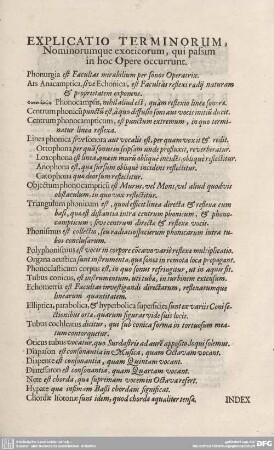 EXPLICATIO TERMINORUM,
Nominorumque exoticorum, qui passim
in hoc Opere occurrunt.
Phonurgia est Facultas mirabilium per sonos Operatrix.
Ars Anacamptica, sive Echonica, est Facultas reflexi radij naturam
& proprietatem exponens.
Phonocampsis, nihil aliud est, quàm reflexio linea sonora.
Centrum phonicũ punctũ est, à quo diffusio soni aut vocis initiũ ducit.
Centrum phonocampticum, est punctum extremum, in quo termi-
natur linea reflexa.
Linea phonica sive sonora aut vocalis est, per quam vox it & redit.
Ortophona per quã sonus in ipsum unde profluxit, revertratur.
Loxophona est linea quæ in muru obliquè incidẽs obliquè reflectitur.
Anophona est, quæ sursum obliquè incidens reflectitur.
Catophona quæ deorsum reflectitur.
Objectum phonocampticũ est Murus, vel Mons, vel aliud quodvis
obstaculum, in quo vox reflectitur.
Triangulum phonicum est, quod efficit linea directa & reflexa cum
basi, quæ est distantia intra centrum phonicum, & phono-
campticum; sive centrum directæ & reflexæ vocis.
Phonismus est collectio, seu radiatio specierum phonicarum intra tu-
bos conclusarum.
Polyphonismus est vocis in corpore cõcavo variè reflexæ multiplicatio.
Organa otacustica sunt instrumenta, quæ sonos in remota loca propagant.
Phonoclasticum corpus est, in quo sonus refringitur, ut in aquis fit.
Tubus conicus, est instrumentum, uti tuba, in turbinem extensum.
Echometria est Facultas investigandi directarum, reflexarumque
linearum quantitatem.
Elliptica, parabolica, & hyperbolica superficies sunt ex variis Coni se-
ctionibus orta, quarum figuras vide suis locis.
Tubus cochleatus dicitur, qui sub conica forma in tortuosum mea-
tum contorquetur.
Oticus tubus vocatur, quo Surdastris ad aurẽ apposito loqui solemus.
Diapason est consonantia in Musica, quam Octavam vocant.
Diapente est consonantia, quam Quintam vocant.
Diatessaron est consonantia, quam Quartam vocant.
Nete est chorda, quæ supremam vocem in Octava refert.
Hypate quæ infimam Bassi chordam significat.
Chordæ Isotonæ sunt idem, quod chordæ æqualiter tensæ.
INDEX